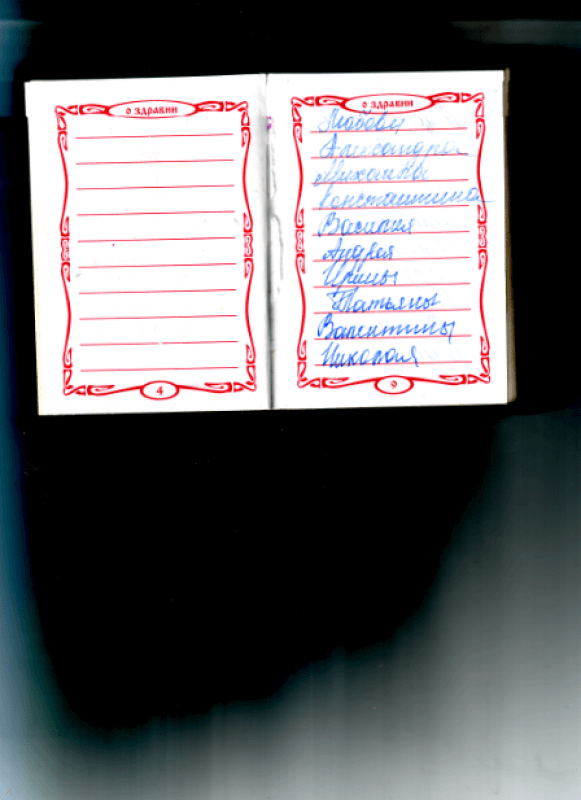 О ЗДРАВИИ
4
О ЗДРАВИИ
Любови
Александра
Михаила
Константина
Василия
Андрея
Ирины
Татьяны
Валентины
Николая
9